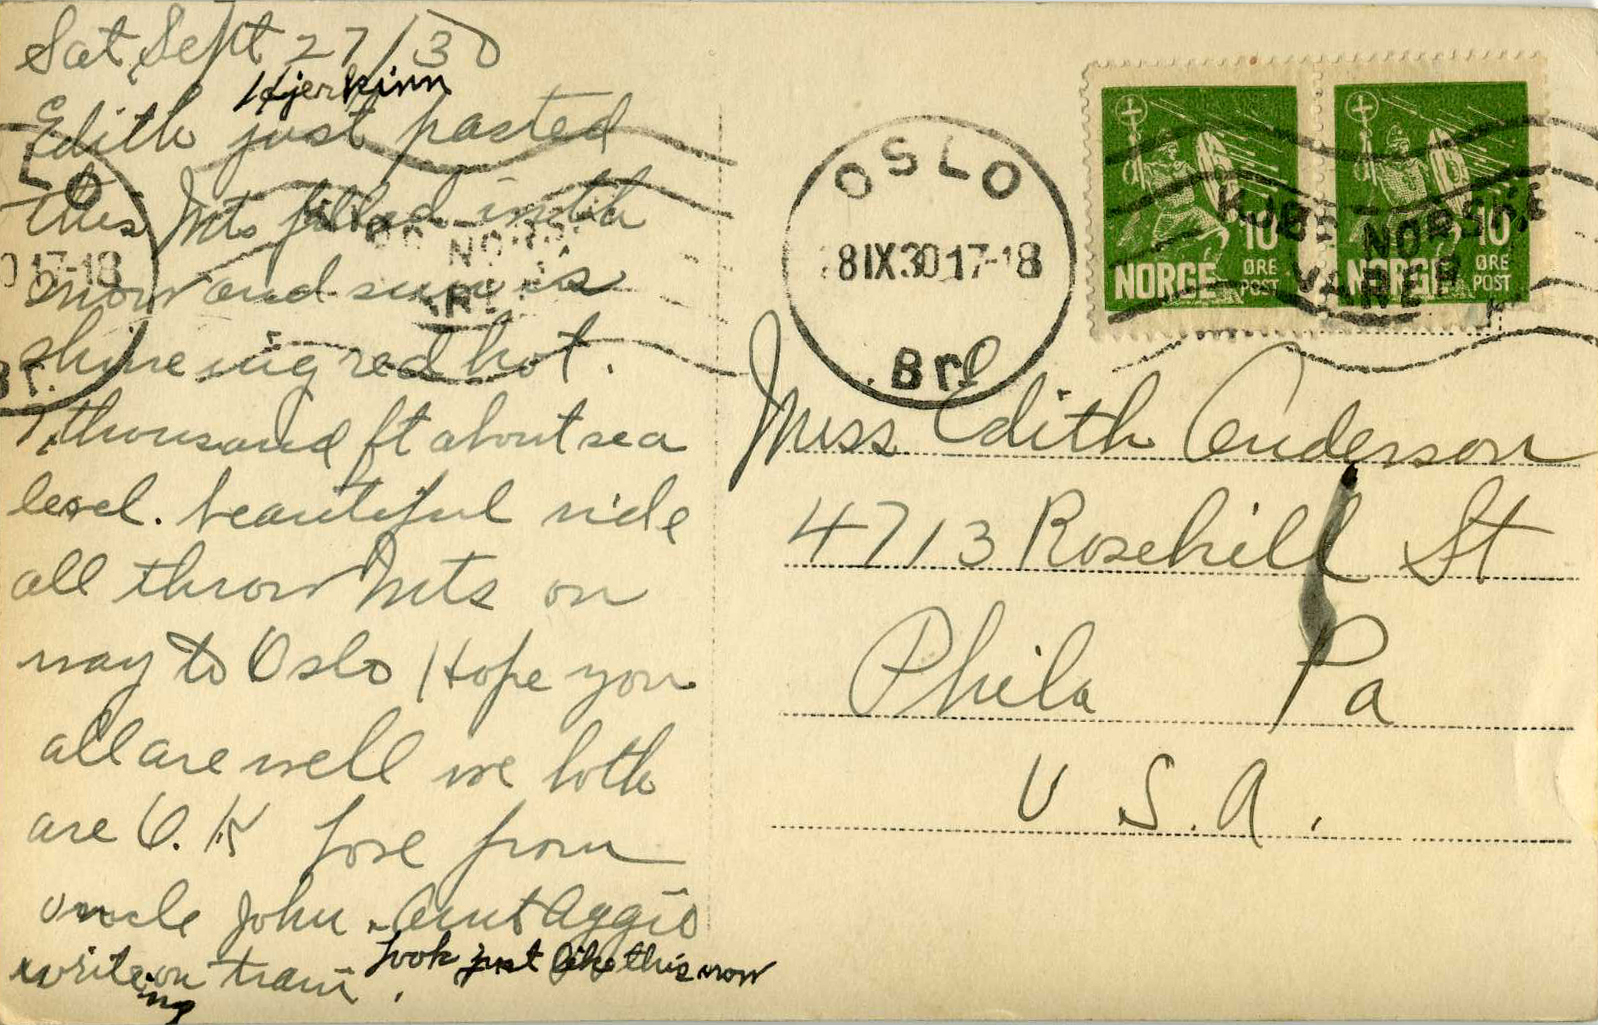 Sat Sept 27/30
Hjerkinn
Edith just pasted
this Mts filled with
snow and sun is
shineing red hot.
7 thousand ft about sea
level. beautiful ride
all throw Mts on
way to Oslo Hope you
all are well we both
are O.K Love from
uncle John & Aunt Aggie
writeing on train.
Look just like this now
OSLO
8 IX 30 17-18
Br.
KJØP NORSKE
VARER
NORGE 10 ØRE POST
NORGE 10 ØRE POST
Miss Edith Anderson
4713 Rosehill St
Phila Pa
U S. A.
LO
0 17-18
Br.
NORSKE